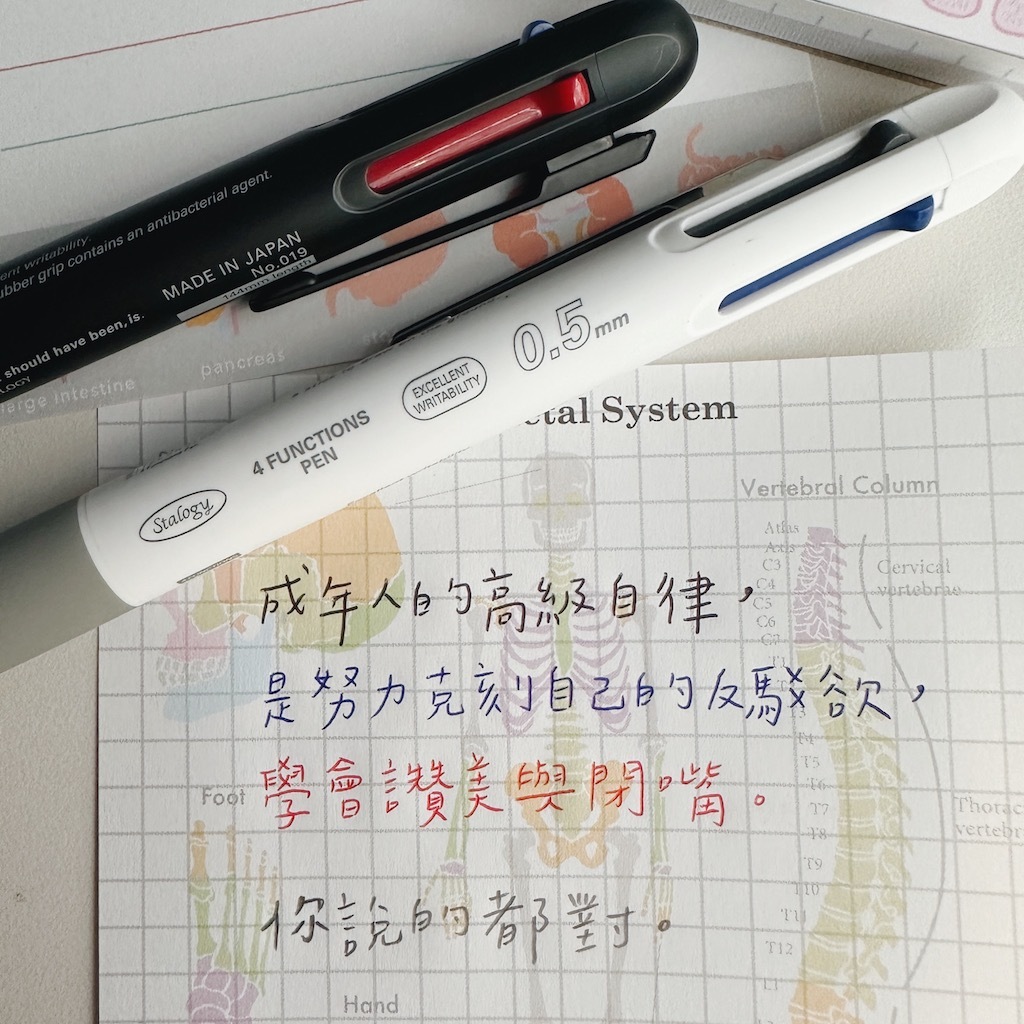 ent writability.
ubber grip contains an antibacterial agent.
MADE IN JAPAN
No.019
144mm length
should have been, is.
LOGY
arge intestine
pancreas
0.5mm
EXCELLENT
WRITABILITY
4 FUNCTIONS
PEN
Stalogy
etal System
Vertebral Column
Atlas
Axis
C3
C4
C5
C6
C7
Cervical
vertebrae
成年人的高級自律，
是努力克刻自己的反駁欲，
學會讚美與閉嘴。
你說的都對。
T1
T3
T4
T5
T6
T7
T8
T9
T10
T11
T12
L1
Thorac
vertebr
Foot
Hand